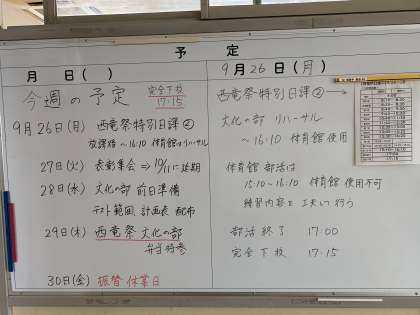 予定
月 日( )
今週の予定
完全下校
17:15
9月26日(月) 西竜祭特別日課②
放課後 ~16:10 体育館はリハーサル
27日(火) 表彰集会 ⇒ 10/11に延期
28日(水) 文化の部 前日準備
テスト範囲 計画表 配布
29日(木) 西竜祭 文化の部
弁当持参
30日(金) 振替休業日
9月26日(月)
西竜祭特別日課②→
文化の部 リハーサル
~16:10 体育館 使用
体育館 部活は
15:10~16:10 体育館 使用不可
練習内容を工夫し行う
部活終了 17:00
完全下校 17:15